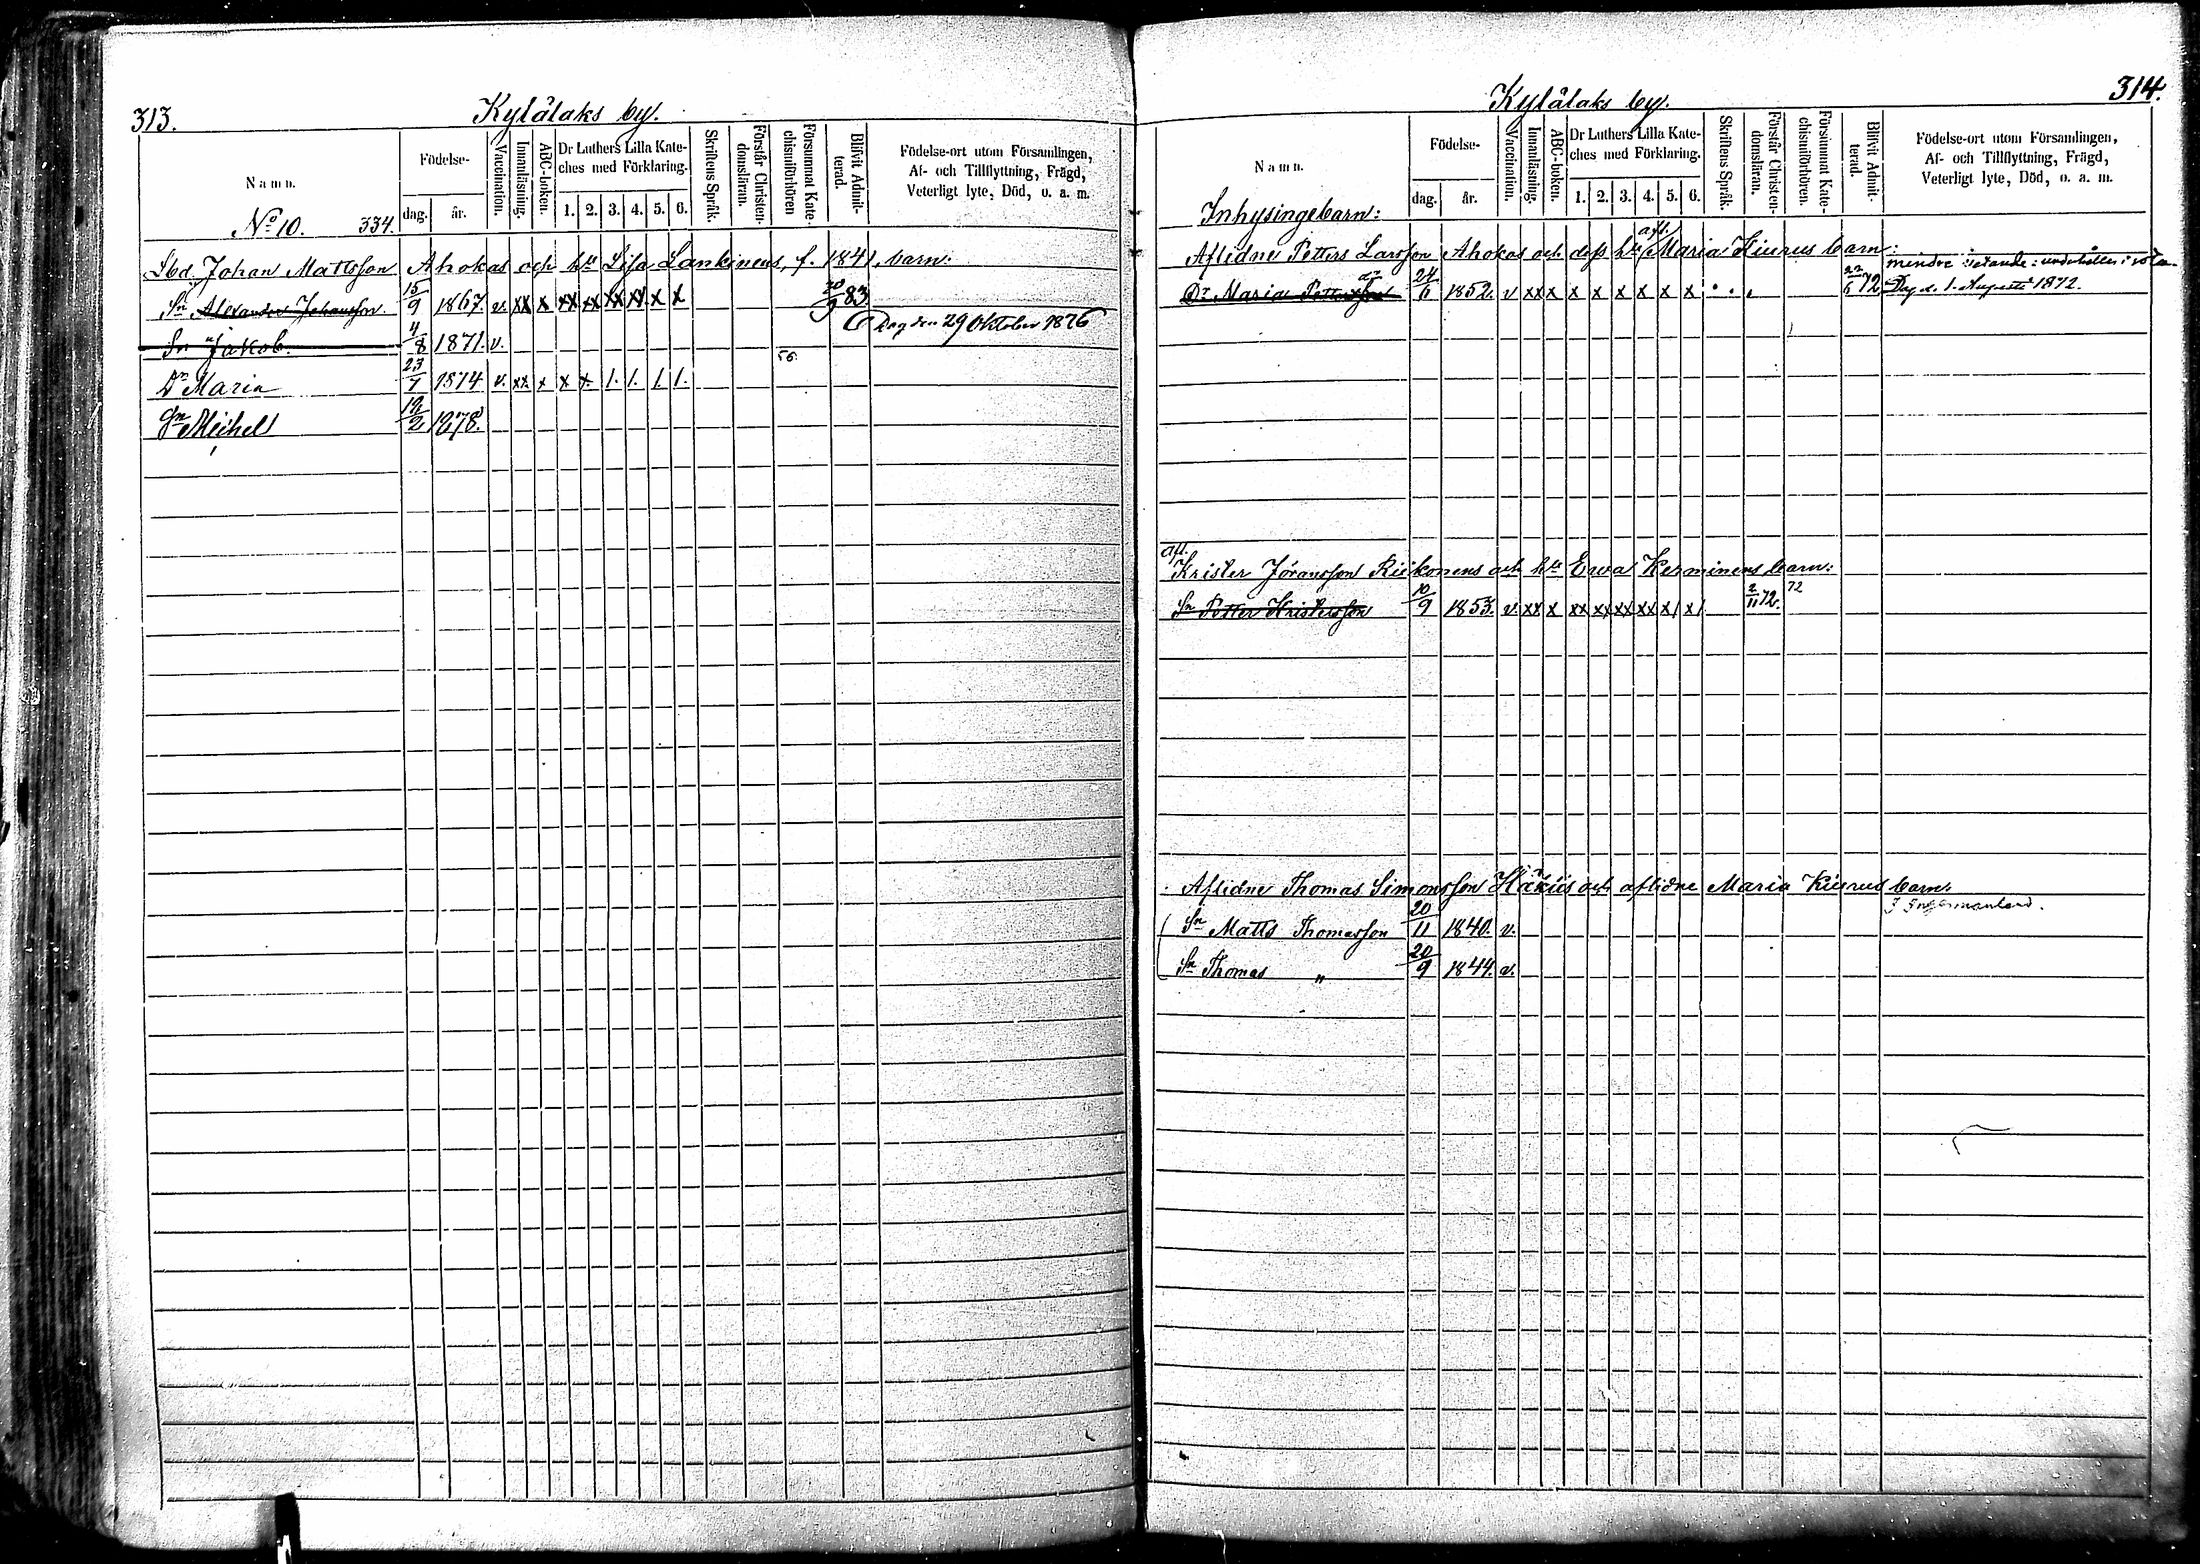 313.
Kylälaks by.
Namn.
Födelse-
dag.
år.
Vaccination.
Innanläsning.
ABC-boken.
Dr Luthers Lilla Kate-
ches med Förklaring.
1. 2. 3. 4. 5. 6.
Skriftens Språk.
Förstår Christen-
domsläran.
Försummat Kate-
chismiförhören
Blifvit Admit-
terad.
Födelse-ort utom Församlingen,
Af- och Tillflyttning, Frägd,
Veterligt lyte, Död, o. a. m.
No 10. 334.
Lbd. Johan Mattsson Ahokas och hu Lisa Lankinens, f. 1841, barn:
Sn Alexander Johansson 15/9 1867. v. xx x xx xx xx xx x x 83
Sn Jakob 4/8 1871. v. Dog den 29 Oktober 1876
Dr Maria 23/7 1874 v. xx. x x x. 1. 1. 1. 1. 56.
Sn Michel 12/2 1878.
314.
Kylälaks by.
Namn.
Födelse-
dag.
år.
Vaccination.
Innanläsning.
ABC-boken.
Dr Luthers Lilla Kate-
ches med Förklaring.
1. 2. 3. 4. 5. 6.
Skriftens Språk.
Förstår Christen-
domsläran.
Försummat Kate-
chismiförhören.
Blifvit Admit-
terad.
Födelse-ort utom Församlingen,
Af- och Tillflyttning, Frägd,
Veterligt lyte, Död, o. a. m.
Inhysingebarn:
Aflidne Petters Larsson Ahokas och dess hu afl. Maria Kiurus barn:
mindre vetande:
Dr Maria Pettersdr 24/6 1852. v xx x x x x x x x 72 Dog d. 1. Augusti 1872.
afl.
Krister Jöransson Riikonens och hu Ewa Kerminens barn:
Sn Petter Kristersson 10/9 1853. v. xx x xx xx xx xx x/ x/ 2/11 72. 72
Aflidne Thomas Simonsson Häkiis och aflidne Maria Kiurus barn.
I Ingermanland.
Sn Matts Thomasson 20/11 1840. v.
Sn Thomas " 20/9 1844. v.